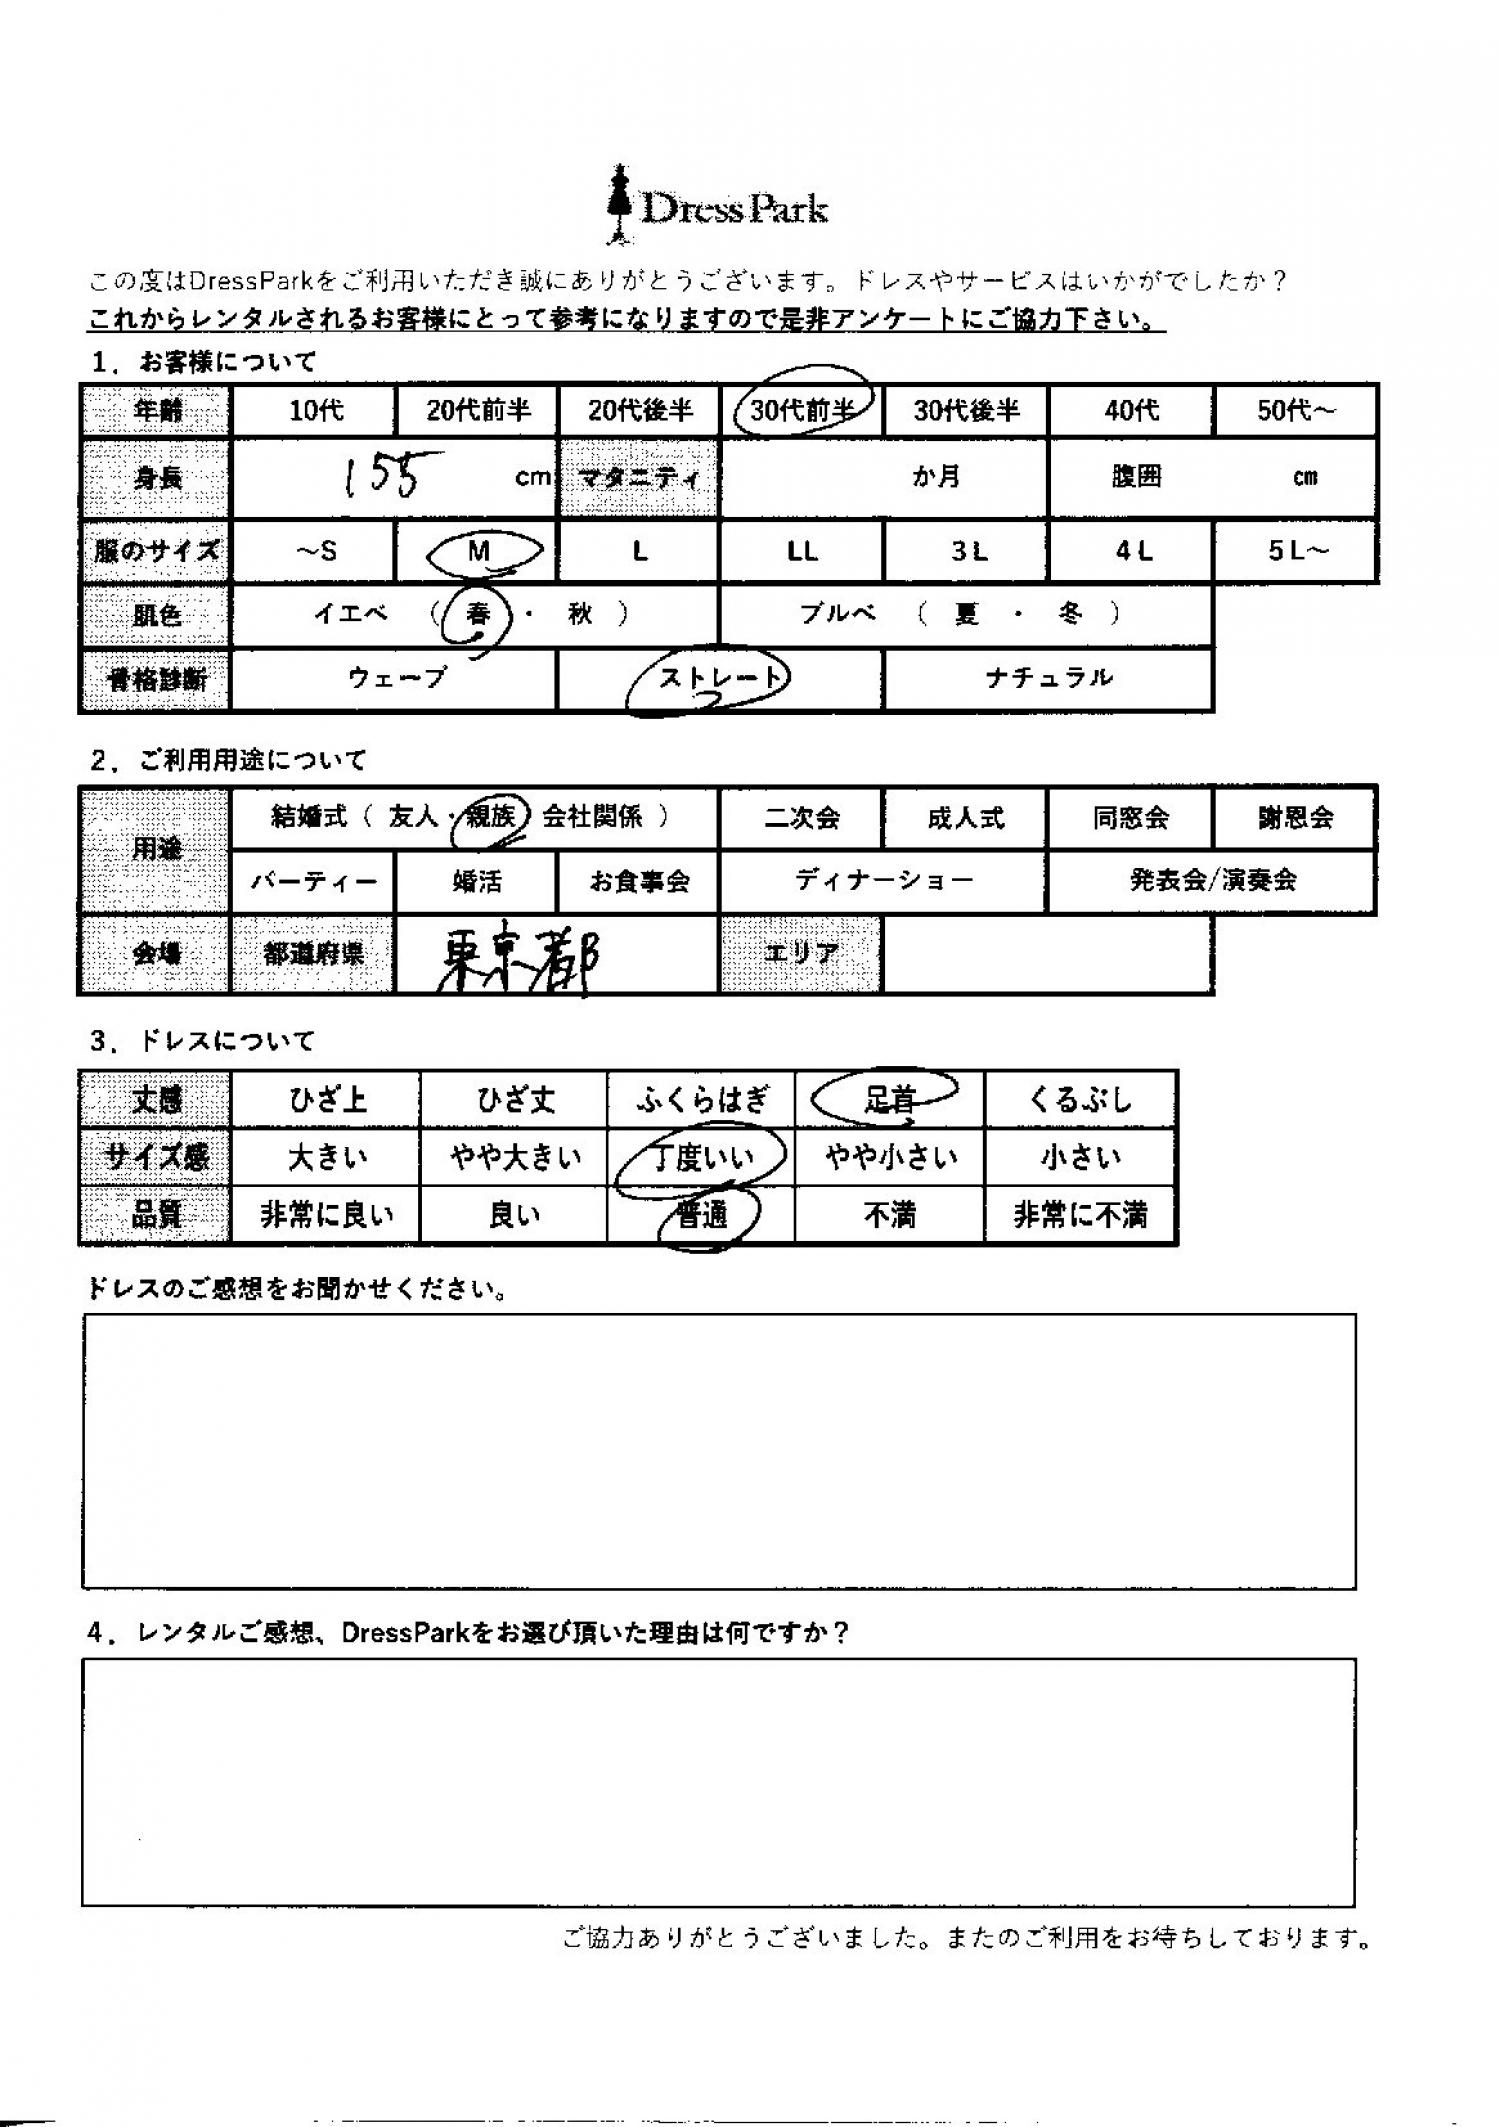 DressPark
この度はDressParkをご利用いただき誠にありがとうございます。ドレスやサービスはいかがでしたか？
これからレンタルされるお客様にとって参考になりますので是非アンケートにご協力下さい。
1．お客様について
年齢 10代 20代前半 20代後半 30代前半 30代後半 40代 50代～
身長 155 cm マタニティ か月 腹囲 cm
服のサイズ ～S M L LL 3L 4L 5L～
肌色 イエベ （ 春 ・ 秋 ） ブルベ （ 夏 ・ 冬 ）
骨格診断 ウェーブ ストレート ナチュラル
2．ご利用用途について
用途 結婚式（ 友人・親族・会社関係 ） 二次会 成人式 同窓会 謝恩会
パーティー 婚活 お食事会 ディナーショー 発表会/演奏会
会場 都道府県 東京都 エリア
3．ドレスについて
丈感 ひざ上 ひざ丈 ふくらはぎ 足首 くるぶし
サイズ感 大きい やや大きい 丁度いい やや小さい 小さい
品質 非常に良い 良い 普通 不満 非常に不満
ドレスのご感想をお聞かせください。
4．レンタルご感想、DressParkをお選び頂いた理由は何ですか？
ご協力ありがとうございました。またのご利用をお待ちしております。